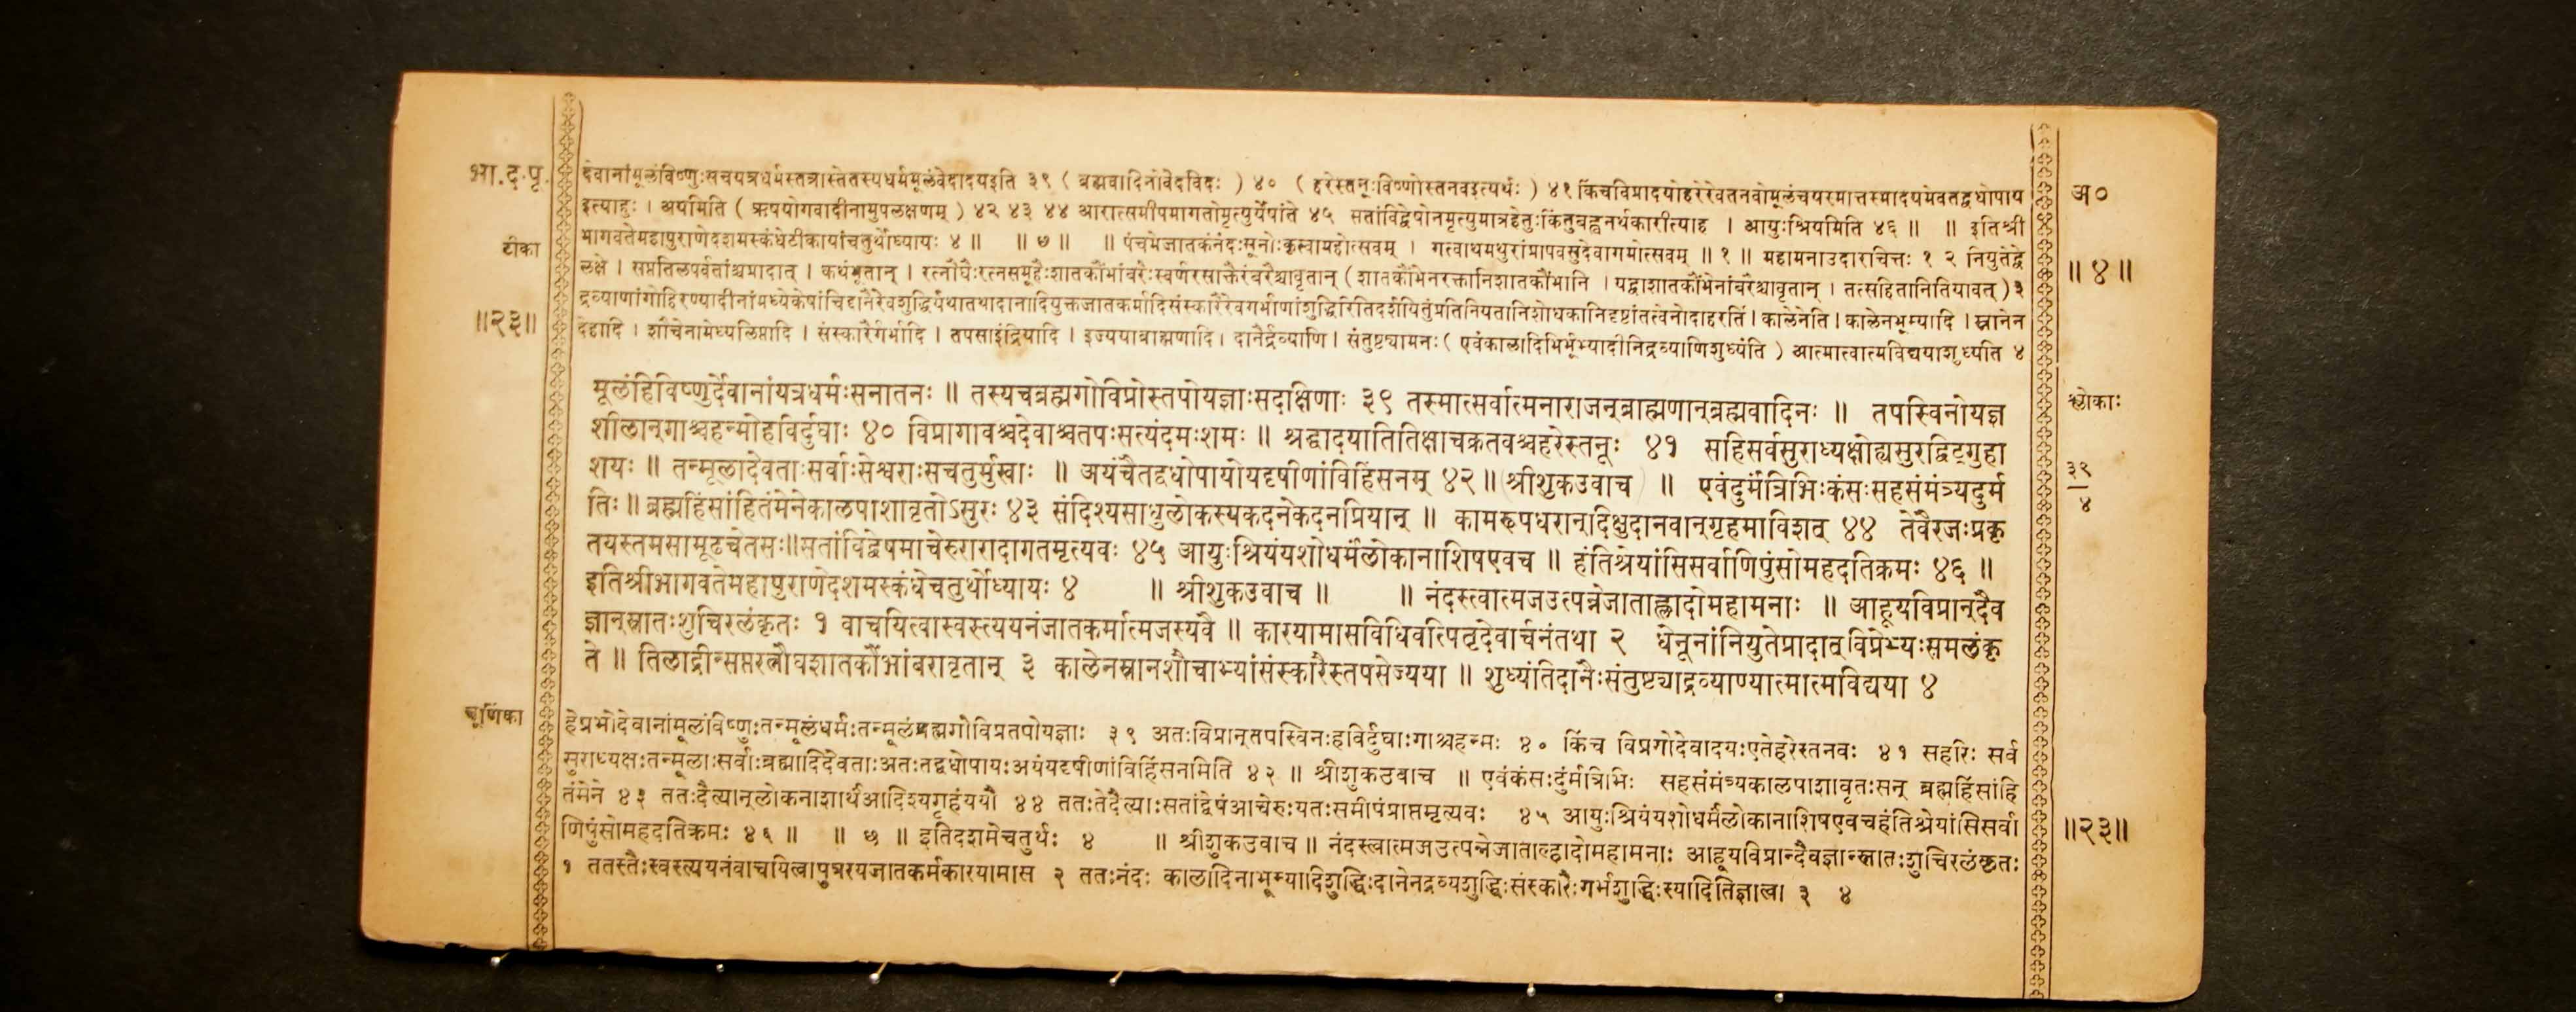 भा.द.पू.
देवानांमूलंविष्णुःसचयत्रधर्मस्तत्रास्तेतस्यधर्ममूलंवेदादयइति ३९ ( ब्रह्मवादिनांवेदविदः ) ४० ( हरेस्तनूःविष्णोस्तनवइत्यर्थः ) ४१ किंचविप्रादयोहरेरेवतनवोमूलंचयस्मात्तस्मादयमेवतद्वधोपाय
अ०
इत्याहुः । अयमिति ( ऋषयोगवादीनामुपलक्षणम् ) ४२ ४३ ४४ आरात्समीपमागतोमृत्युर्येषांते ४५ सतांविद्वेषोनमृत्युमात्रहेतुःकिंतुबह्वनर्थकारीत्याह । आयुःश्रियमिति ४६ ॥ ॥ इतिश्री
टीका
भागवतेमहापुराणेदशमस्कंधेटीकायांचतुर्थोध्यायः ४ ॥ ॥ ७ ॥ ॥ पंचमेजातकंनंदःसूनोःकृत्वामहोत्सवम् । गत्वाथमथुरांप्रापवसुदेवागमोत्सवम् ॥ १ ॥ महामनाउदारचित्तः १ २ नियुतेद्वे
लक्षे । सप्ततिलपर्वतांश्चप्रादात् । कथंभूतान् । रत्नौघैःरत्नसमूहैःशातकौंभांबरैःस्वर्णरसाक्तैरंबरैश्चावृतान् ( शातकौंभेनरक्तानिशातकौंभानि । यद्वाशातकौंभेनांबरैश्चावृतान् । तत्सहितानितियावत् ) ३
॥ ४ ॥
द्रव्याणांगोहिरण्यादीनांमध्येकेषांचिद्दानैरेवशुद्धिर्यथातथादानादियुक्तजातकर्मादिसंस्कारैरेवगर्भाणांशुद्धिरितिदर्शयितुंप्रतिनियतानिशोधकानिदृष्टांतत्वेनोदाहरति । कालेनेति । कालेनभूम्यादि । स्नानेन
॥२३॥
देहादि । शौचेनामेध्यलिप्तादि । संस्कारैर्गर्भादि । तपसाइंद्रियादि । इज्ययाब्राह्मणादि । दानैर्द्रव्याणि । संतुष्ट्यामनः ( एवंकालादिभिर्भूम्यादीनिद्रव्याणिशुध्यंति ) आत्मात्वात्मविद्ययाशुध्यति ४
मूलंहिविष्णुर्देवानांयत्रधर्मःसनातनः ॥ तस्यचब्रह्मगोविप्रोस्तपोयज्ञाःसदक्षिणाः ३९ तस्मात्सर्वात्मनाराजन्ब्राह्मणान्ब्रह्मवादिनः ॥ तपस्विनोयज्ञ
श्लोकाः
शीलान्गाश्चहन्मोहविर्दुघाः ४० विप्रागावश्चदेवाश्चतपःसत्यंदमःशमः ॥ श्रद्धादयातितिक्षाचक्रतवश्चहरेस्तनूः ४१ सहिसर्वसुराध्यक्षोह्यसुरद्विट्गुहा
शयः ॥ तन्मूलादेवताःसर्वाःसेश्वराःसचतुर्मुखाः ॥ अयंचैतद्वधोपायोयदृषीणांविहिंसनम् ४२ ॥ (श्रीशुकउवाच) ॥ एवंदुर्मंत्रिभिःकंसःसहसंमंत्र्यदुर्म
३९
४
तिः ॥ ब्रह्महिंसांहितंमेनेकालपाशावृतोऽसुरः ४३ संदिश्यसाधुलोकस्यकदनेकदनप्रियान् ॥ कामरूपधरान्दिक्षुदानवान्गृहमाविशत् ४४ तेवैरजःप्रकृ
तयस्तमसामूढचेतसः॥सतांविद्वेषमाचेरुरारादागतमृत्यवः ४५ आयुःश्रियंयशोधर्मंलोकानाशिषएवच ॥ हंतिश्रेयांसिसर्वाणिपुंसोमहदतिक्रमः ४६ ॥
इतिश्रीभागवतेमहापुराणेदशमस्कंधेचतुर्थोध्यायः ४ ॥ श्रीशुकउवाच ॥ ॥ नंदस्त्वात्मजउत्पन्नेजाताह्लादोमहामनाः ॥ आहूयविप्रान्दैव
ज्ञान्स्नातःशुचिरलंकृतः १ वाचयित्वास्वस्त्ययनंजातकर्मात्मजस्यवै ॥ कारयामासविधिवत्पितृदेवार्चनंतथा २ धेनूनांनियुतेप्रादाद्विप्रेभ्यःसमलंकृ
ते ॥ तिलाद्रीन्सप्तरत्नौघशातकौंभांबरावृतान् ३ कालेनस्नानशौचाभ्यांसंस्कारैस्तपसेज्यया ॥ शुध्यंतिदानैःसंतुष्ट्याद्रव्याण्यात्मात्मविद्यया ४
चूर्णिका
हेप्रभोदेवानांमूलंविष्णुःतन्मूलंधर्मःतन्मूलंब्रह्मगोविप्रतपोयज्ञाः ३९ अतःविप्रान्तपस्विनःहविर्दुघाःगाश्चहन्मः ४० किंच विप्रगोदेवादयःएतेहरेस्तनवः ४१ सहरिः सर्व
सुराध्यक्षःतन्मूलाःसर्वाःब्रह्मादिदेवताःअतःतद्वधोपायःअयंयदृषीणांविहिंसनमिति ४२ ॥ श्रीशुकउवाच ॥ एवंकंसःदुर्मंत्रिभिः सहसंमंत्र्यकालपाशावृतःसन् ब्रह्महिंसांहि
तंमेने ४३ ततःदैत्यान्लोकनाशार्थंआदिश्यगृहंययौ ४४ ततःतेदैत्याःसतांद्वेषंआचेरुःयतःसमीपंप्राप्तमृत्यवः ४५ आयुःश्रियंयशोधर्मंलोकानाशिषएवचहंतिश्रेयांसिसर्वा
॥२३॥
णिपुंसोमहदतिक्रमः ४६ ॥ ॥ ७ ॥ इतिदशमेचतुर्थः ४ ॥ श्रीशुकउवाच ॥ नंदस्त्वात्मजउत्पन्नेजाताल्हादोमहामनाः आहूयविप्रान्दैवज्ञान्स्नातःशुचिरलंकृतः
१ ततस्तैःस्वस्त्ययनंवाचयित्वापुत्रस्यजातकर्मकारयामास २ ततःनंदः कालादिनाभूम्यादिशुद्धिःदानेनद्रव्यशुद्धिःसंस्कारैःगर्भशुद्धिःस्यादितिज्ञात्वा ३ ४